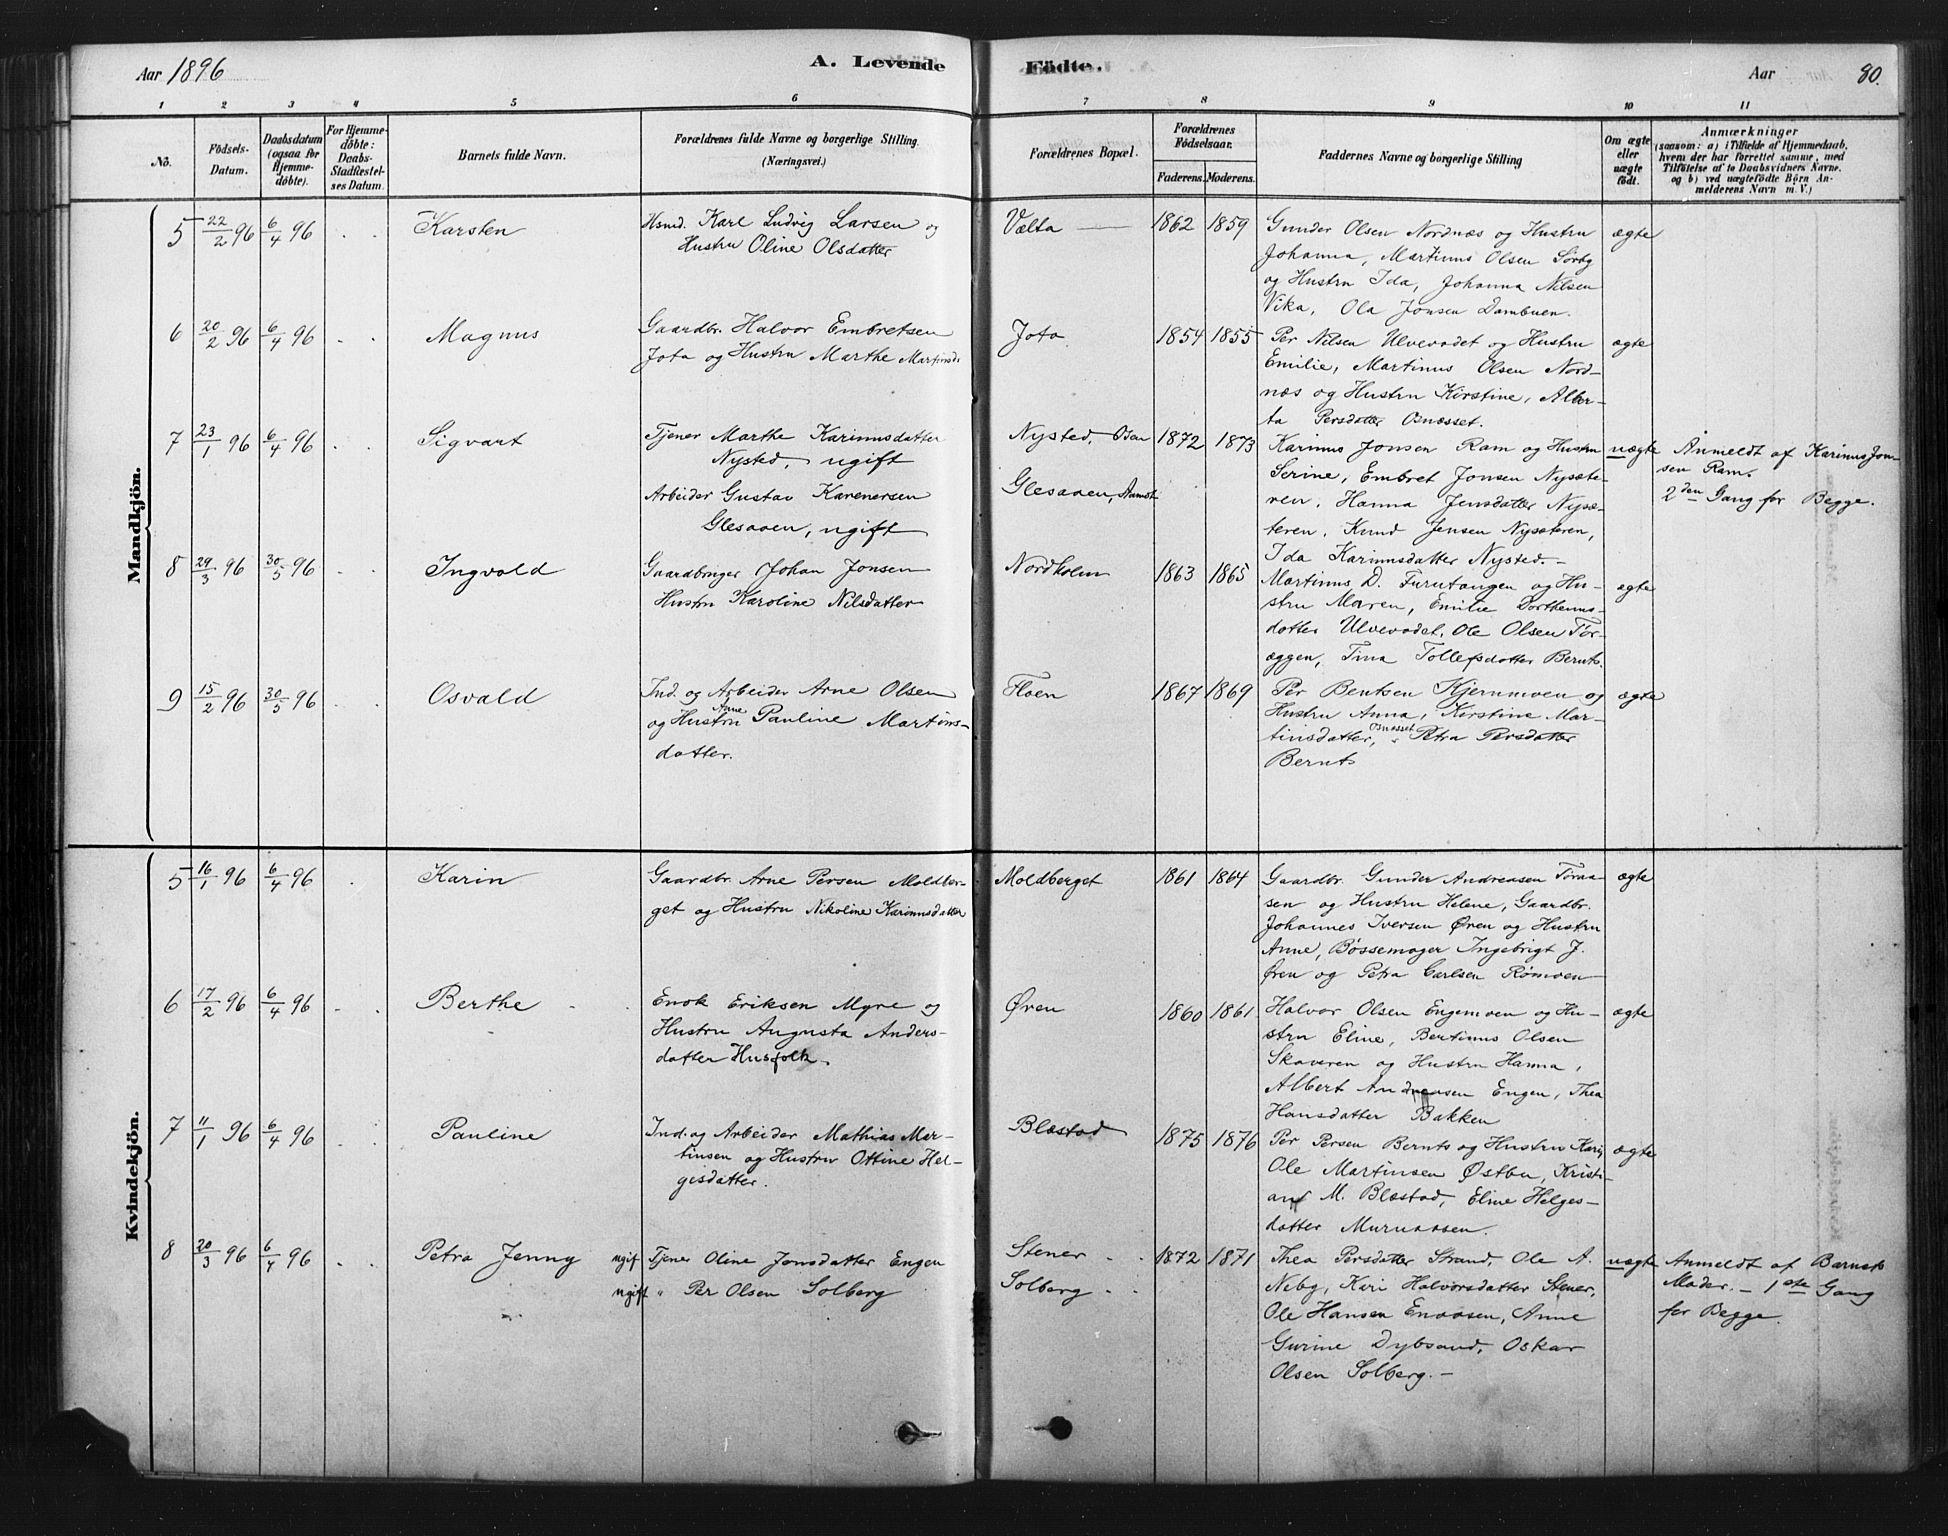 Aar 1896
A. Levende Födte.
Aar
80.
1 2 3 4 5 6 7 8 9 10 11
No.
Födsels-Datum.
Daabsdatum (ogsaa for Hjemme-döbte).
For Hjemme-döbte: Daabs-Stadfæstel-ses Datum.
Barnets fulde Navn.
Forældrenes fulde Navne og borgerlige Stilling. (Næringsvei.)
Forældrenes Bopæl.
Forældrenes Födselsaar.
Faderens. Moderens.
Faddernes Navne og borgerlige Stilling
Om ægte eller uægte födt.
Anmærkninger
(saasom: a) i Tilfælde af Hjemmedaab, hvem der har forrettet samme, med Tilföielse af to Daabsvidners Navne, og b) ved uægtefödte Börn An-melderens Navn m. V.)
Mandkjön.
5 22/2 96 6/4 96 Karsten
Hsmd. Karl Ludvig Larsen og
Hustru Oline Olsdatter
Vælta 1862 1859
Gunder Olsen Nordnæs og Hustru
Johanna, Martinus Olsen Sörby
og Hustru Ida, Johanna Nilsen
Vika, Ola Jonsen Dambuen.
ægte
6 20/2 96 6/4 96 Magnus
Gaardbr. Halvor Embretsen
Jota og Hustru Marthe Martinsd.
Jota 1854 1855
Per Nilsen Ulvevadet og Hustru
Emilie, Martinus Olsen Nord-
næs og Hustru Kirstine, Alber-
ta Persdatter Osnæsset.
ægte
7 23/1 96 6/4 96 Sigvart
Tjener Marthe Karinusdatter
Nysted, ugift
Arbeider Gustav Karenersen
Glesaaen, ugift
Nysted, Osen
Glesaaen, Aamot
1872 1873
Karinus Jonsen Ram og Hustru
Serine, Embret Jonsen Nysæte-
ren, Hanna Jensdatter Nysæ-
teren, Knud Jensen Nysæteren,
Ida Karinusdatter Nysted.-
uægte
Anmeldt af Karinus Jon-
sen Ram.
2den Gang for Begge.
8 29/3 96 30/5 96 Ingvald
Gaardbruger Johan Jonsen
Hustru Karoline Nilsdatter
Nordholm 1863 1865
Martinus D. Furutangen og Hu-
stru Maren, Emilie Dorthenus-
datter Ulvevadet, Ole Olsen Tör-
æggen, Tina Tollefsdatter Bernts.
ægte
9 15/2 96 30/5 96 Osvald
Ind. og Arbeider Arne Olsen
og Hustru Anne Pauline Martins-
datter.
Floen 1867 1869
Per Bentsen Kjernmoen og
Hustru Anna, Kirstine Mar-
tinsdatter, Osnæsset Petra Persdatter
Bernts
ægte
Kvindekjön.
5 16/1 96 6/4 96 Karin
Gaardbr. Arne Persen Moldber-
get og Hustru Nikoline Karinusdatter
Moldberget 1861 1864
Gaardbr. Gunder Andreasen Töraa-
sen og Hustru Helene, Gaardbr.
Johannes Iversen Øren og Hustru
Anne, Bössemager Ingebrigt J.
Øren og Petra Carlsen Römoen
ægte
6 17/2 96 6/4 96 Berthe
Enok Eriksen Myre og
Hustru Augusta Anders-
datter Husfolk.
Øren 1860 1861
Halvor Olsen Engemoen og Hu-
stru Eline, Bertinus Olsen
Skaveren og Hustru Hanna,
Albert Andreasen Engen, Thea
Hansdatter Bakken
ægte
7 11/1 96 6/4 96 Pauline
Ind. og Arbeider Mathias Mar-
tinsen og Hustru Ottine Hel-
gisdatter.
Blæstad 1875 1876
Per Persen Bernts og Hustru Kari,
Ole Martinsen Østbu, Kristi-
an M. Blæstad, Eline Helges-
datter Muruaasen.
ægte
8 20/3 96 6/4 96 Petra Jenny
ugift Tjener Oline Jonsdatter Engen
ugift " Per Olsen Solberg
Stener
Solberg
1872 1871
Thea Persdatter Strand, Ole A.
Neby, Kari Halvorsdatter Stener,
Ole Hansen Enaasen, Anne
Gurine Dybsand, Oskar
Olsen Solberg.-
uægte
Anmeldt af Barnets
Moder. - 1ste Gang
for Begge.